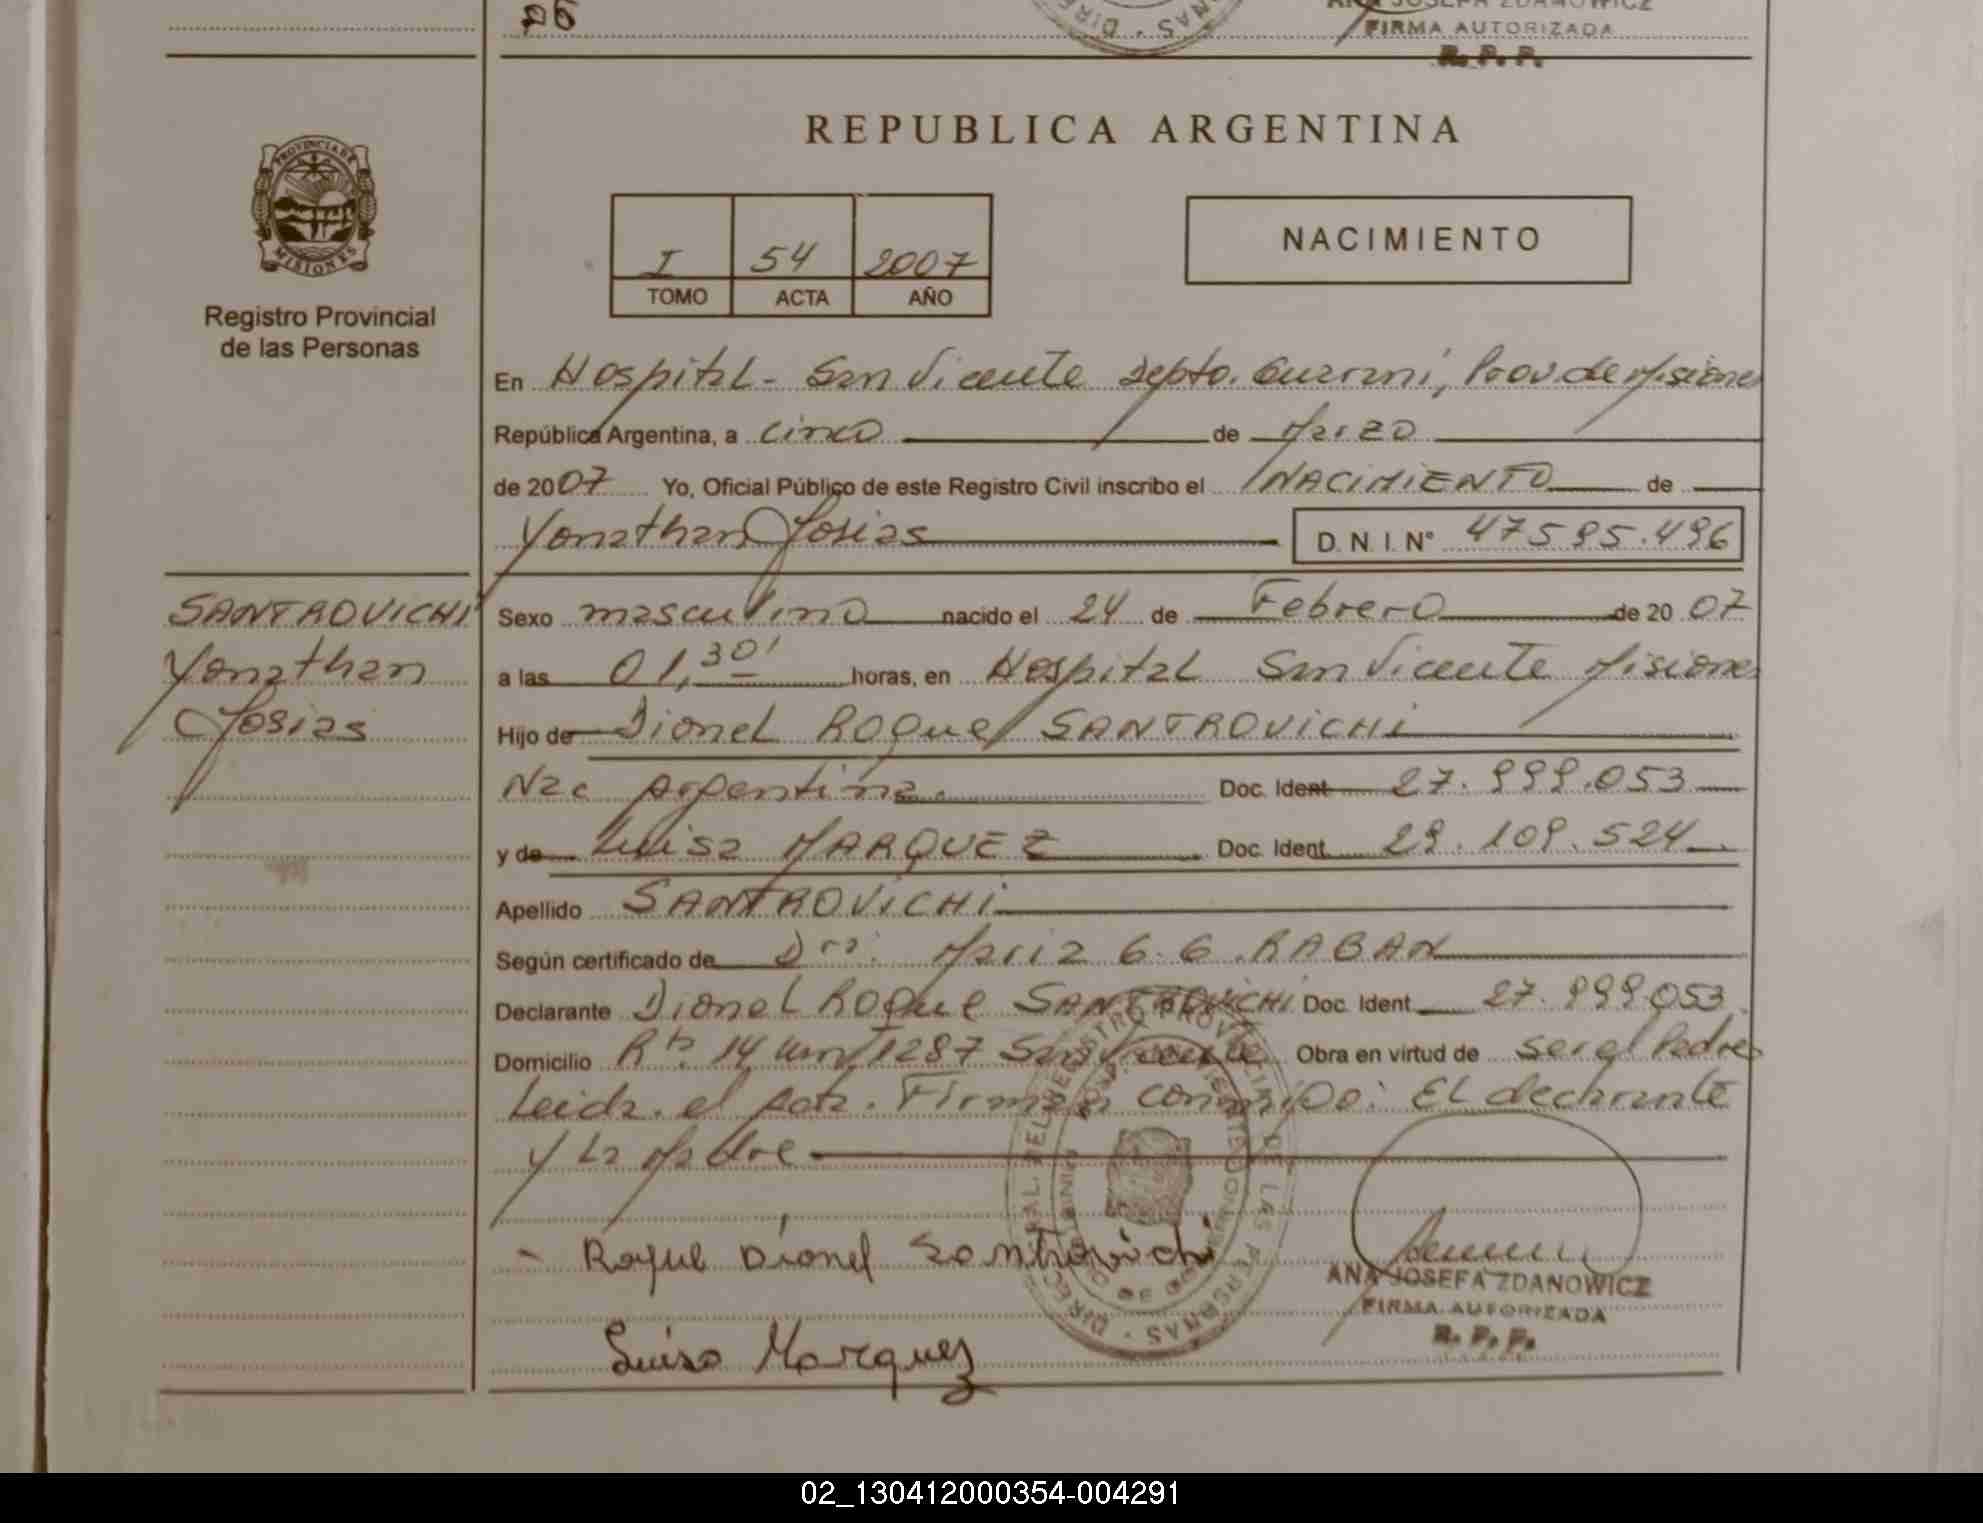 26
ANA JOSEFA ZDANOWICZ
FIRMA AUTORIZADA
R. P. P.
REPUBLICA ARGENTINA
PROVINCIA DE
MISIONES
Registro Provincial
de las Personas
I 54 2007
TOMO ACTA AÑO
NACIMIENTO
En Hospital - San Vicente Depto. Guarani, Prov. de Misiones
República Argentina, a cinco de Marzo
de 2007 Yo, Oficial Público de este Registro Civil inscribo el NACIMIENTO de
Yonathan Josias D. N. I. N° 47595.496
SANTROVICHI
Yonathan
Josias
Sexo masculino nacido el 24 de Febrero de 2007
a las 01,30' horas, en Hospital San Vicente Misiones
Hijo de Dionel Roque SANTROVICHI
Nac Argentina. Doc. Ident 27.999.053
y de Luisa MARQUEZ Doc. Ident 29.109.524
Apellido SANTROVICHI
Según certificado de Dra. Maria G. G. RABAN
Declarante Dionel Roque SANTROVICHI Doc. Ident 27.999.053
Domicilio Rta. 14 km 1287 San Vicente Obra en virtud de ser el Padre
Leida el Acta. Firman conmigo: El declarante
y La Madre
- Roque Dionel Santrovichi
ANA JOSEFA ZDANOWICZ
FIRMA AUTORIZADA
R. P. P.
Luisa Marquez
02_130412000354-004291